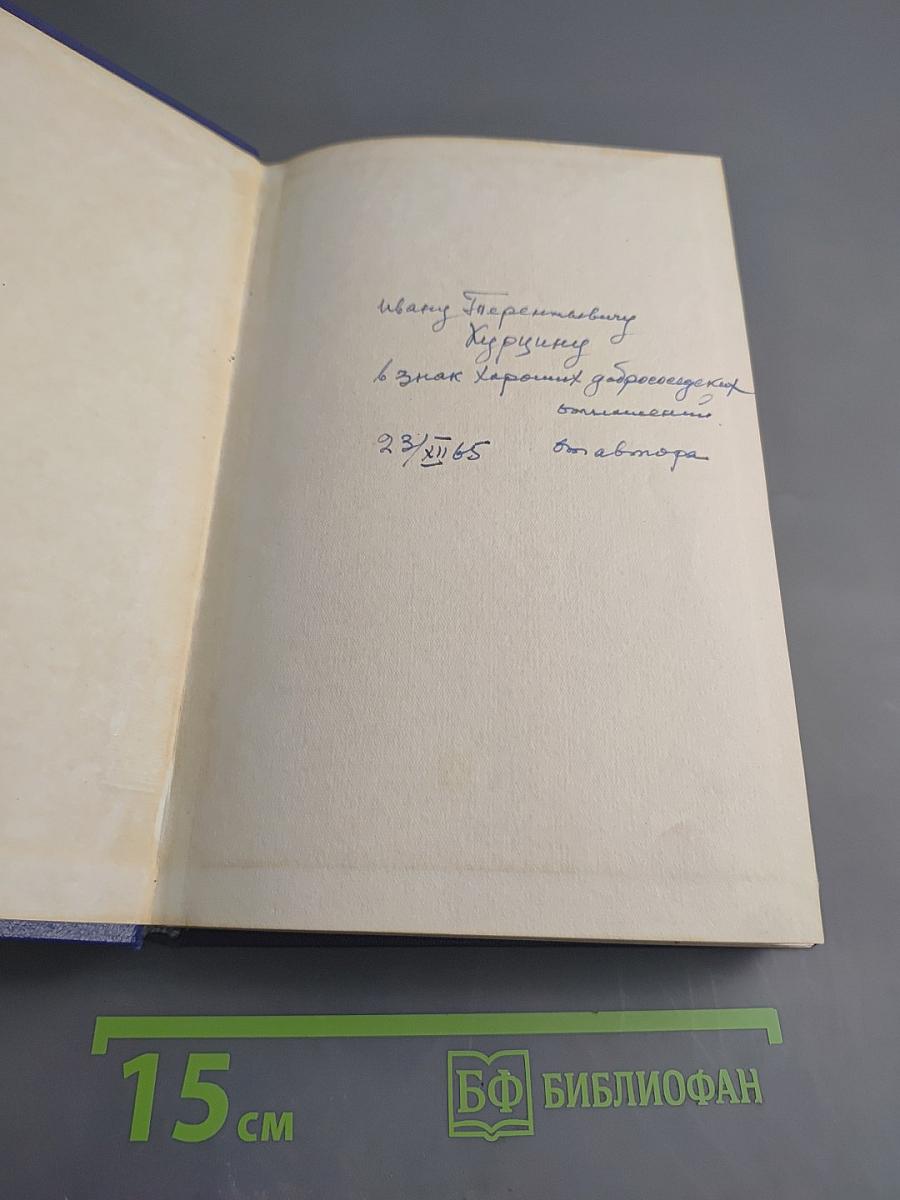 Ивану Терентьевичу
Курцину
в знак хороших добрососедских
отношений
23/XII 65 от автора
15 см
БФ БИБЛИОФАН